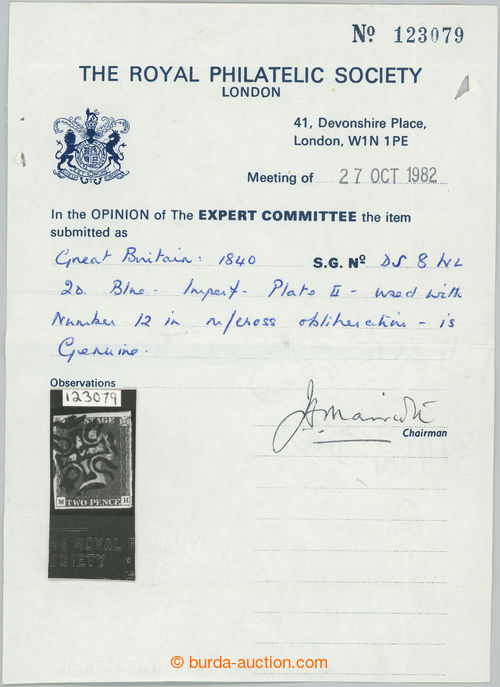 No 123079
THE ROYAL PHILATELIC SOCIETY
LONDON
41, Devonshire Place,
London, W1N 1PE
Meeting of 27 OCT 1982
In the OPINION of The EXPERT COMMITTEE the item
submitted as
Great Britain: 1840 S.G. No DS 8 WL
2D. Blue - Imperf. Plate II - used with
Number 12 in m/cross obliteration - is
Genuine.
Observations
123079
Chairman
POSTAGE
M TWO PENCE H
THE ROYAL P
SOCIETY
© burda-auction.com